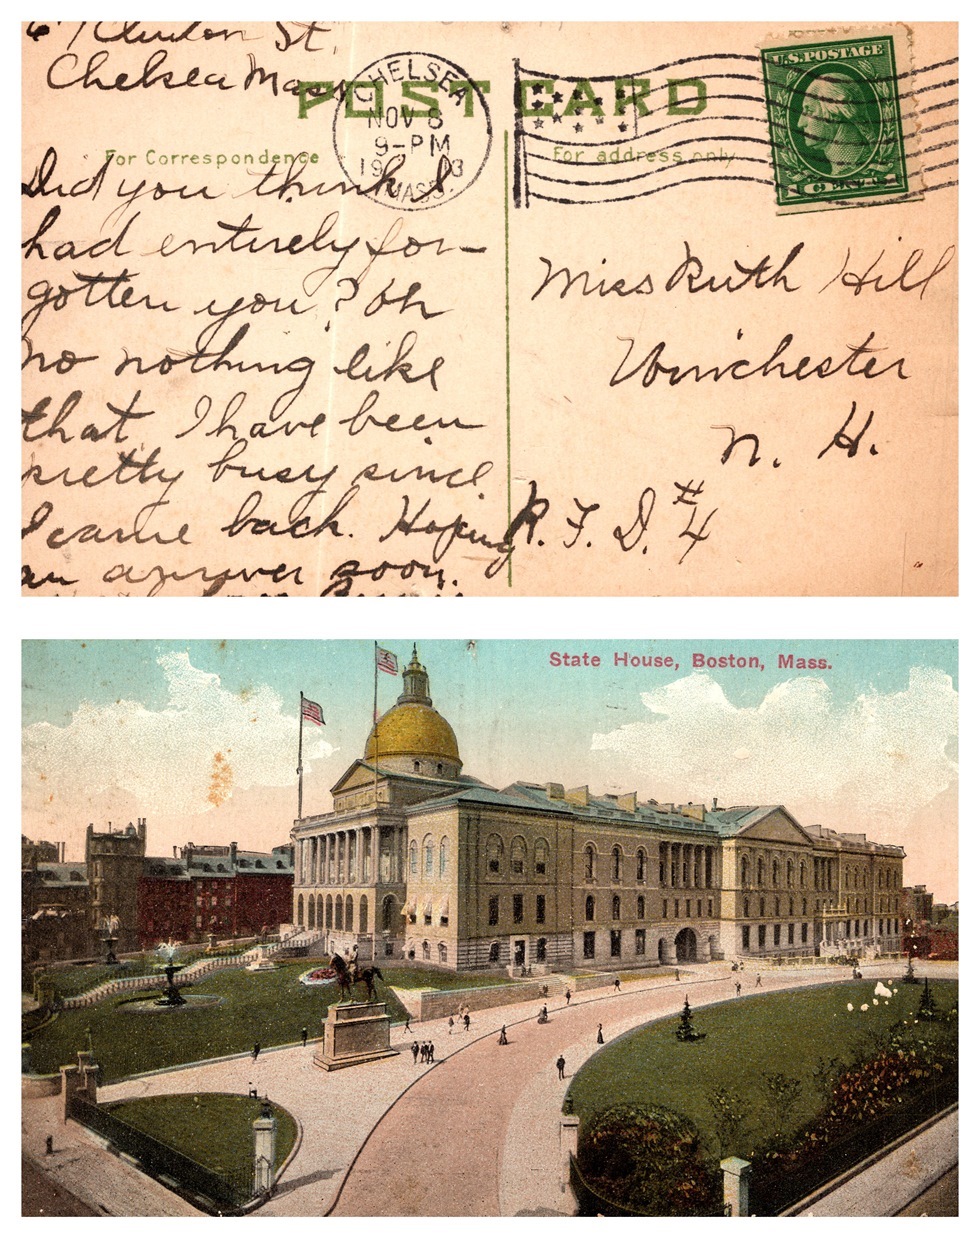 St.
Chelsea Mass
POST CARD
CHELSEA
NOV 8
9-PM
MASS.
U.S. POSTAGE
For Correspondence
For address only
Did you think I
had entirely for-
gotten you? Oh
no nothing like
that. I have been
pretty busy since
I came back. Hoping
an answer soon.
Miss Ruth Hill
Winchester
N. H.
R. F. D. #4
State House, Boston, Mass.